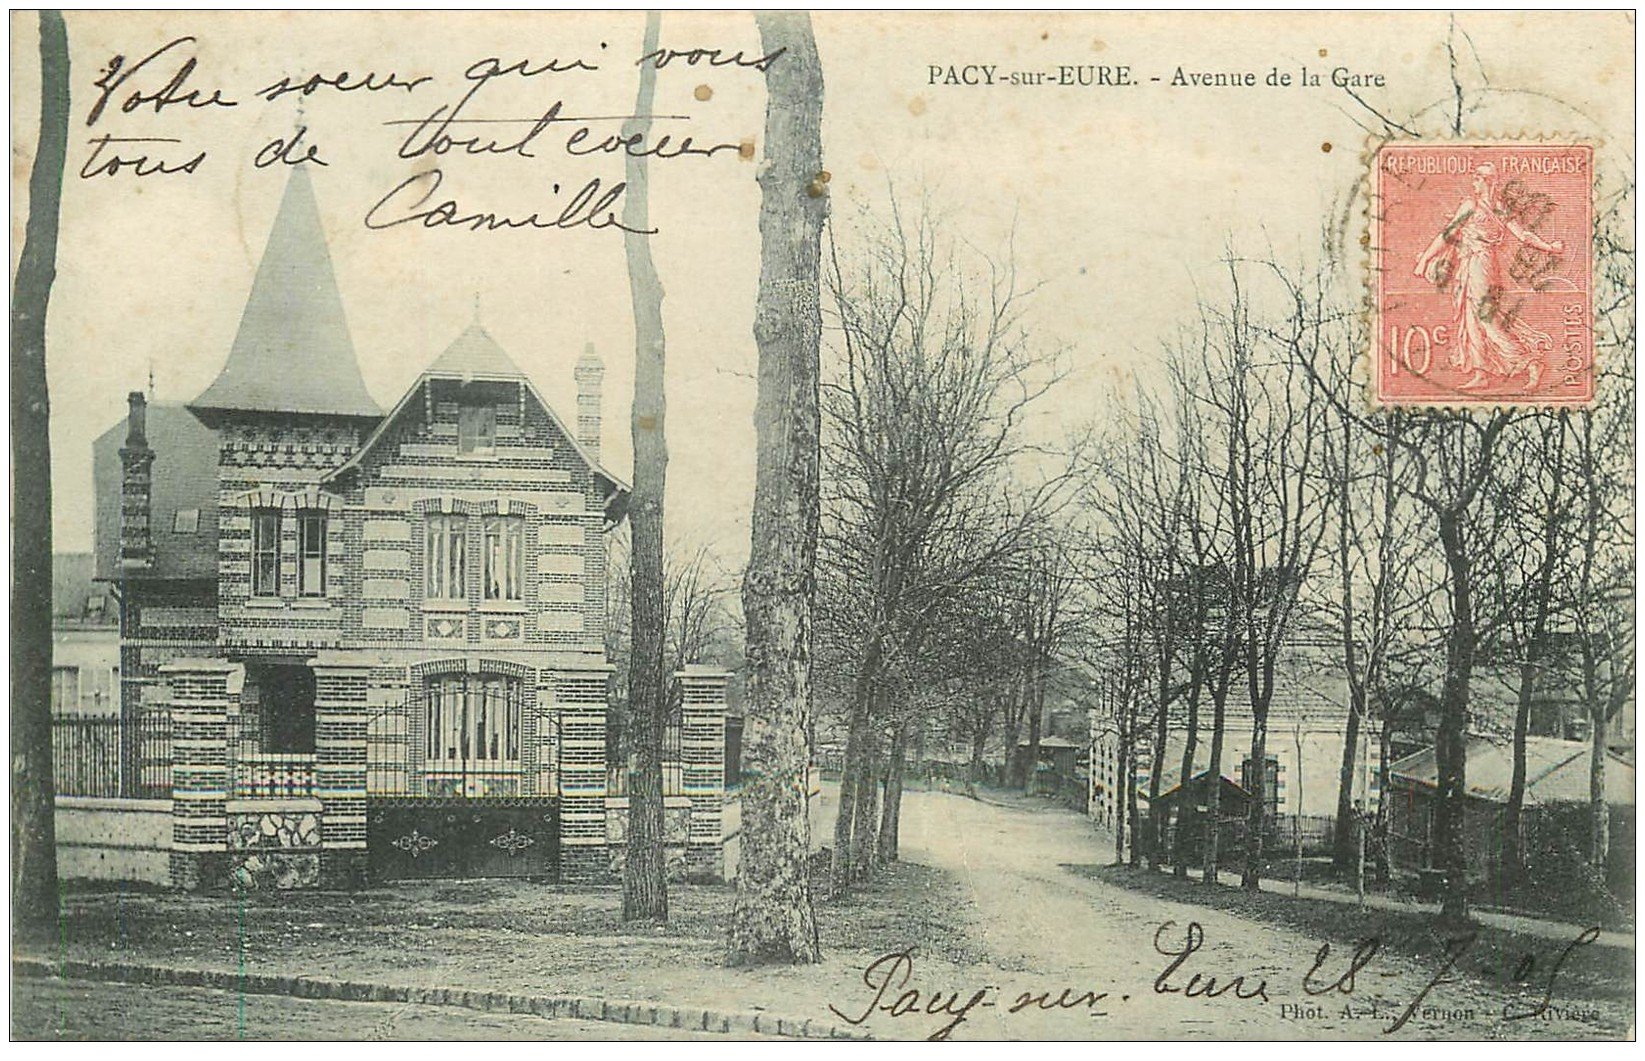 Votre soeur qui vous
tous de tout coeur
Camille
PACY-sur-EURE. - Avenue de la Gare
RÉPUBLIQUE FRANÇAISE
10c
POSTES
Pacy-sur-Eure 28-7-05
Phot. A. L., Vernon - C. Rivière